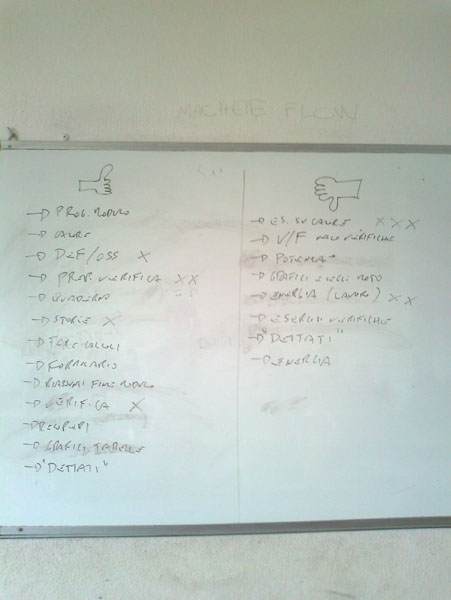 MACHETE FLOW
→ PROG. MODULO
→ CALORE
→ DEF/OSS X
→ PREP. VERIFICA X X
→ QUADERNO
→ STORIE X
→ FARE CALCOLI
→ FORMULARIO
→ RIASSUNTI FINE MODULO
→ VERIFICA X
→ RECUPERI
→ GRAFICI, TABELLE
→ "DETTATI"
→ ES. SU CALORE X X X
→ V/F NELLE VERIFICHE
→ POTENZA
→ GRAFICI MOTO
→ ENERGIA (LAVORO) X X
→ ESERCIZI VERIFICHE
→ "DETTATI"
→ ENERGIA